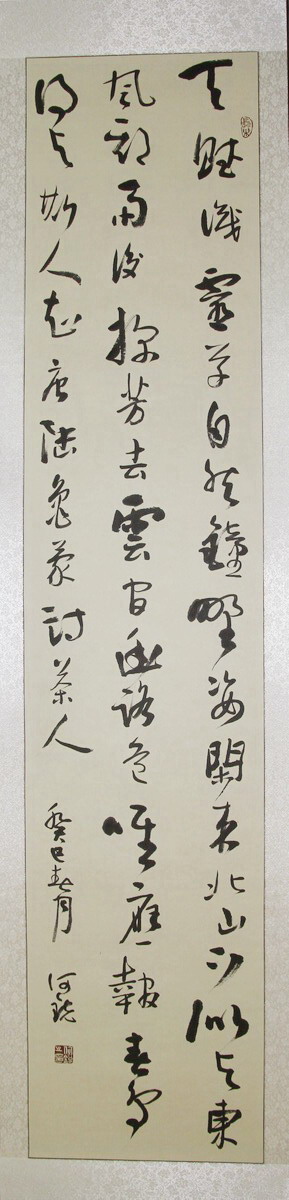 天賦識靈草自然鐘野姿閑來北山下似与東
風期雨後探芳去雲間幽路危唯應報春鳥
得与斯人知唐陸龜蒙詩茶人 癸巳春月 何